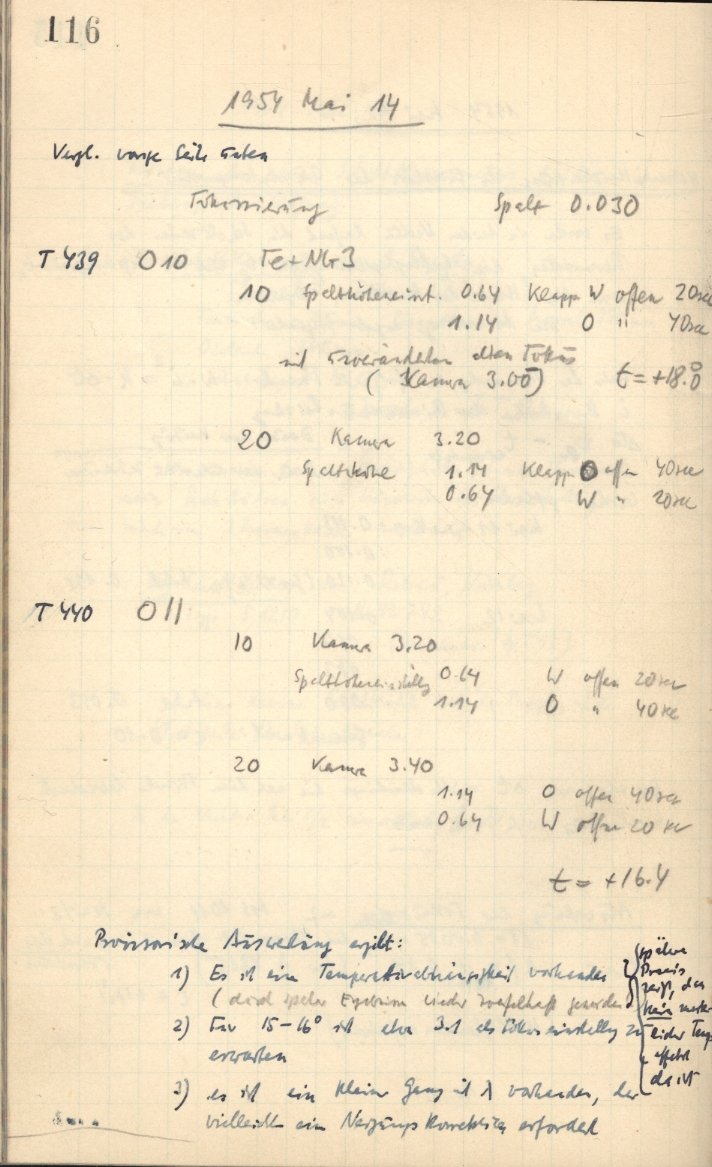 116
1954 Mai 14
Vergl. vorige Seite unten
Fokussierung Spalt 0.030
T 439 O10 Fe+NGr3
10 Spalthöheneinst. 0.64 Klappe W offen 20sec
1.14 O " 40sec
mit unverändertem alten Fokus
(Kamera 3.00) t = +18.0°
20 Kamera 3.20
Spalthöhe 1.14 Klappe O offen 40sec
0.64 W " 20sec
T 440 O11
10 Kamera 3.20
Spalthöheneinstellg 0.64 W offen 20sec
1.14 O " 40sec
20 Kamera 3.40
1.14 O offen 40sec
0.64 W offen 20sec
t = +16.4
Provisorische Auswertung ergibt:
1) Es ist eine Temperaturabhängigkeit vorhanden
(durch spätere Ergebnisse wieder zweifelhaft geworden)
2) Für 15–16° ist etwa als Fokuseinstellung zu
erwarten
3) es ist ein kleiner Gang mit λ vorhanden, der
vielleicht ein Neigungskorrektion erfordert
spätere
Praxis
zeigt, das
kein merk-
licher Temp
effekt
da ist